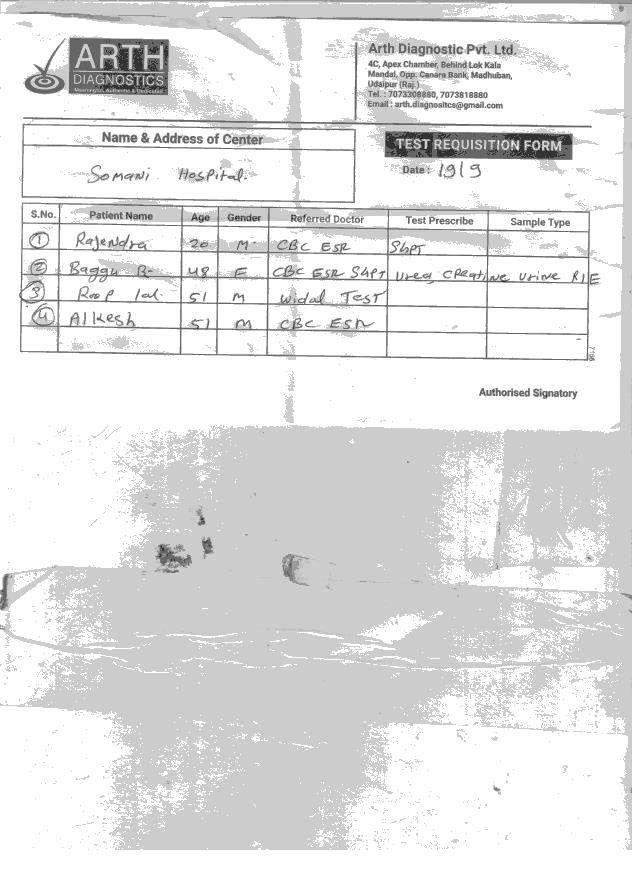 ARTH
DIAGNOSTICS
Meaningful, Authentic & Dedicated
Arth Diagnostic Pvt. Ltd.
4C, Apex Chamber, Behind Lok Kala
Mandal, Opp. Canara Bank, Madhuban,
Udaipur (Raj.)
Tel. : 7073308880, 7073818880
Email : arth.diagnositcs@gmail.com
Name & Address of Center
Somani Hospital
TEST REQUISITION FORM
Date : 19/9
S.No. Patient Name Age Gender Referred Doctor Test Prescribe Sample Type
1 Rajendra 20 M CBC ESR SGPT
2 Baggu B- 48 F CBC ESR SGPT Urea, Creatine Urine R/E
3 Roop lal. 51 M Widal Test
4 Alkesh 51 M CBC ESR
7196
Authorised Signatory